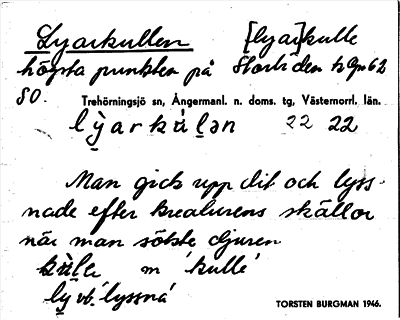 Lyarkullen [lyar]kulle
högsta punkten på Storliden
80.
Trehörningsjö sn, Ångermanl. n. doms. tg, Västernorrl. län.
22 22
Man gick upp dit och lyss-
nade efter kreaturens skällor
när man sökte djuren
m 'kulle'
vb. 'lyssna'
TORSTEN BURGMAN 1946.